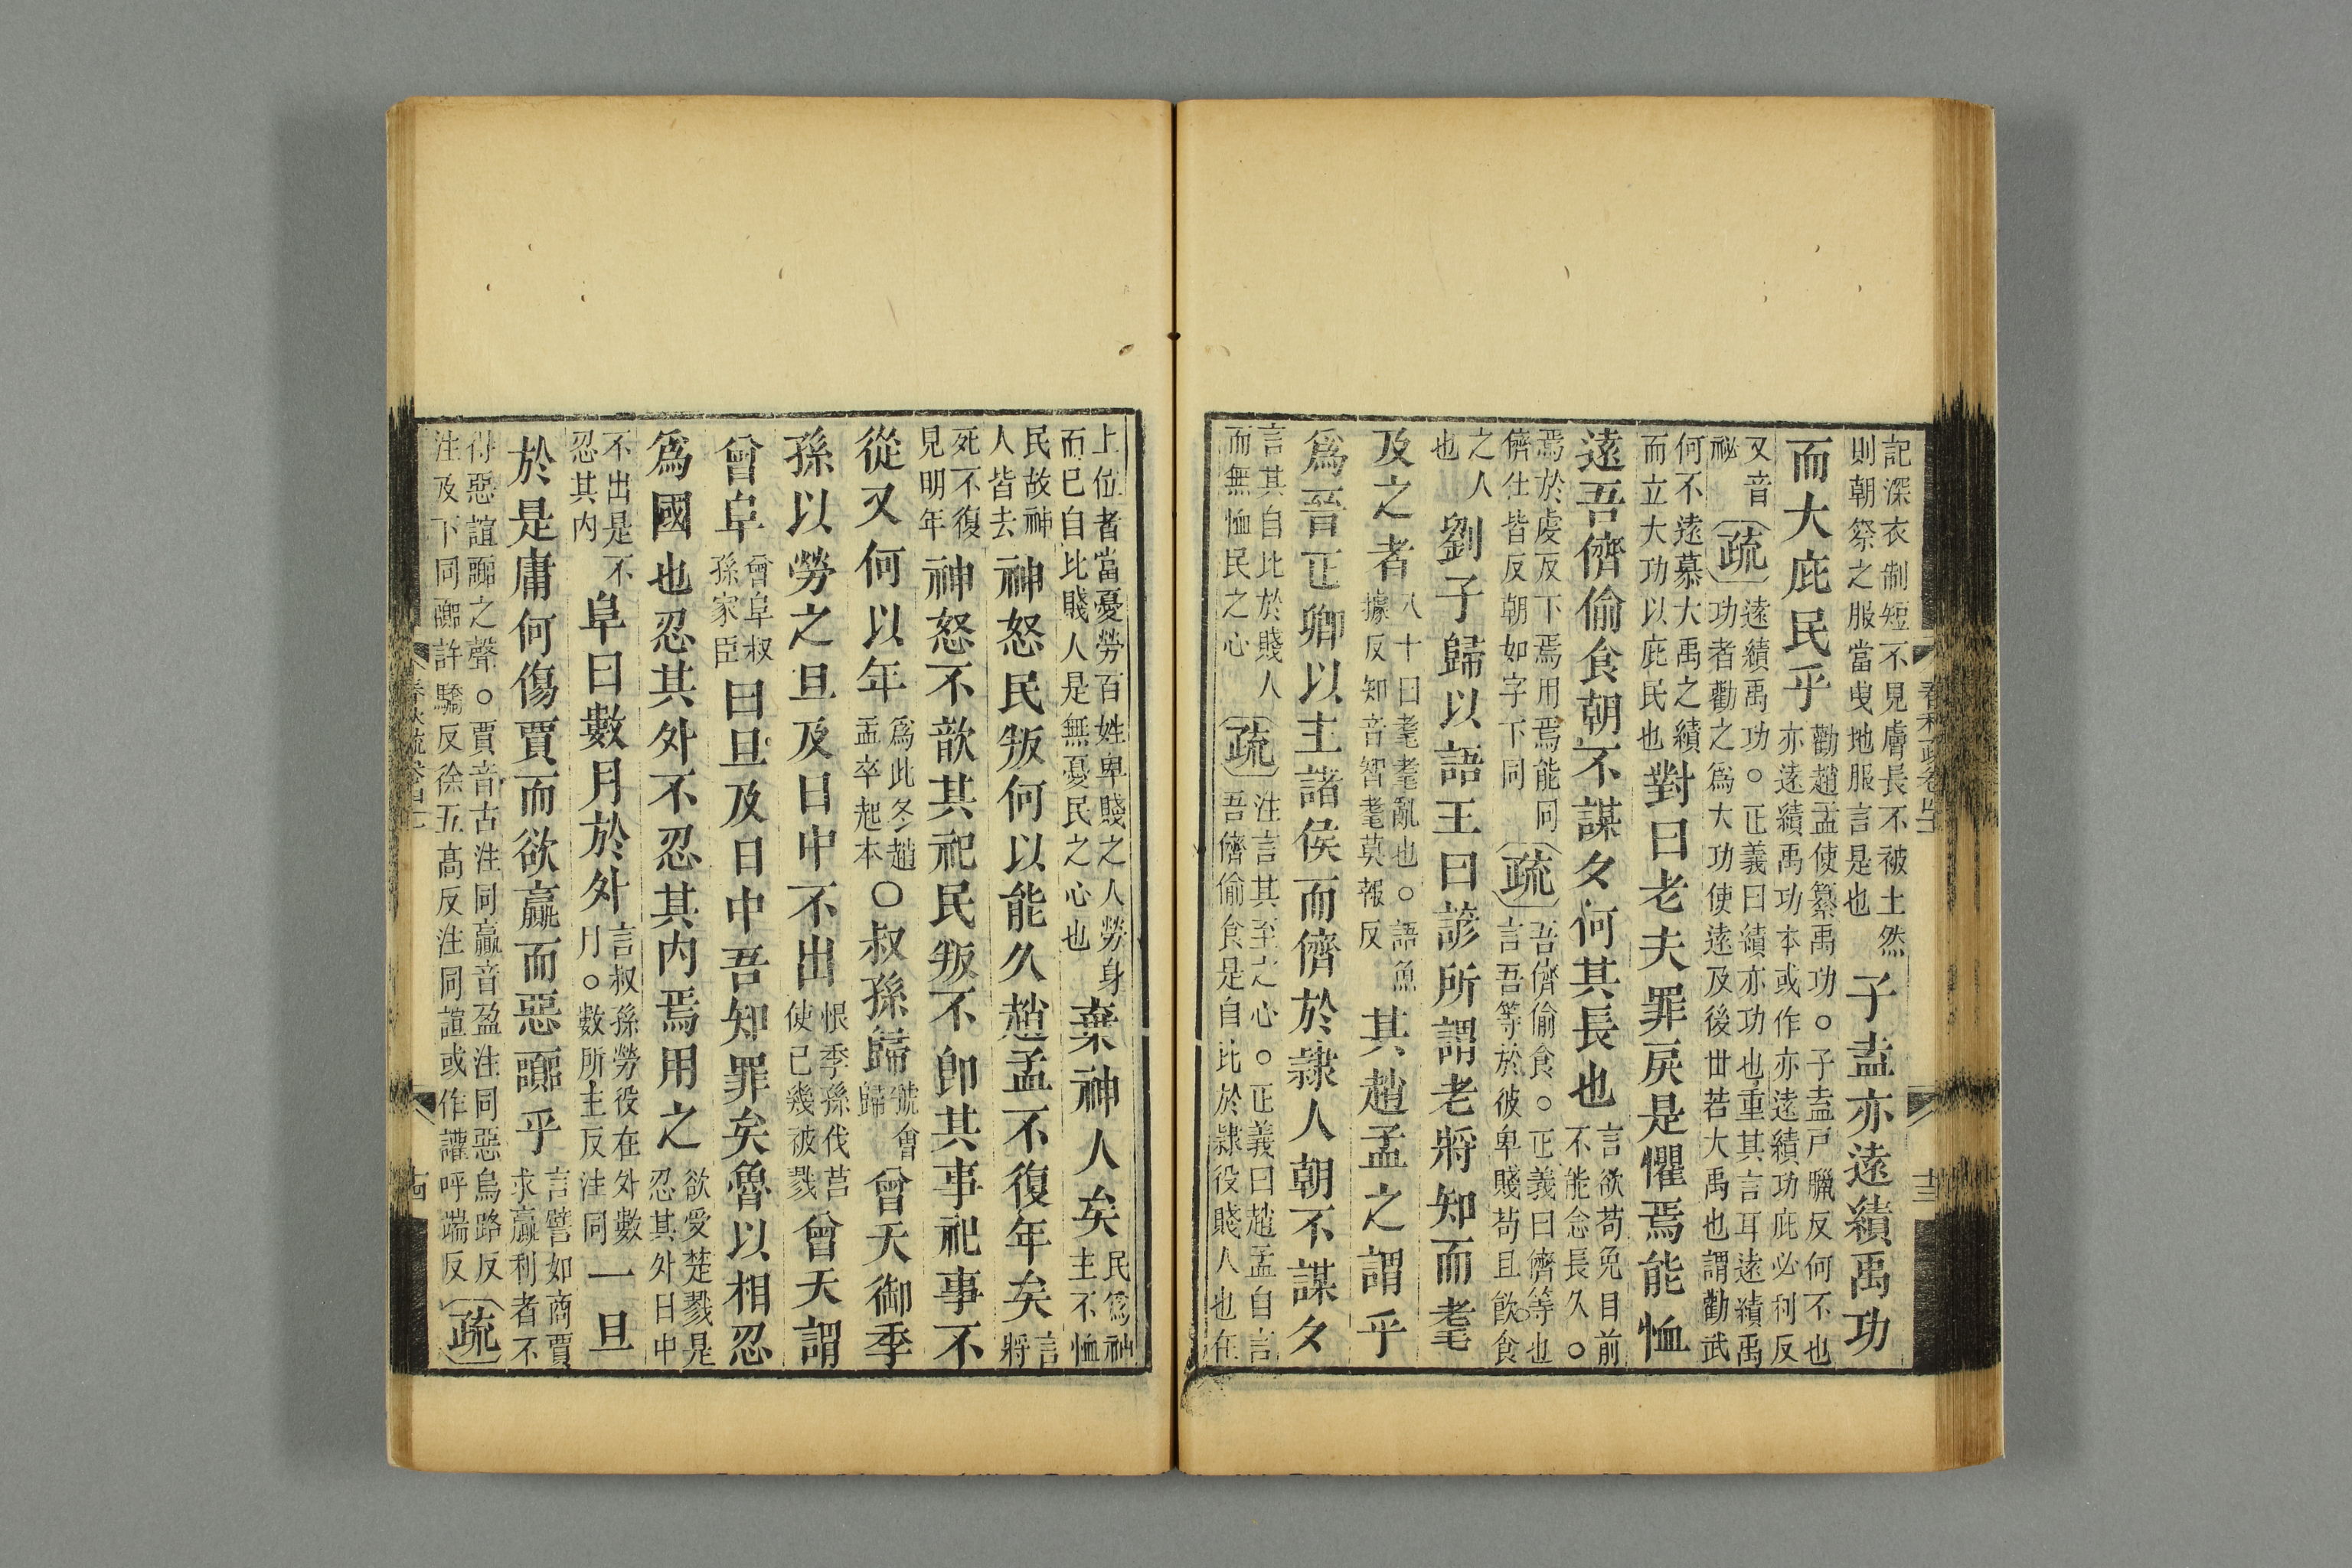 春秋疏卷四十一
十三
記深衣制短不見膚長不被土然則朝祭之服當曳地服言是也子盍亦遠績禹功
而大庇民乎勸趙孟使纂禹功○子盍戸臘反何不也亦遠績禹功本或作亦遠績功庇必利反
又音祕疏遠績禹功○正義曰績亦功也重其言耳遠績禹功者勸之爲大功使遠及後世若大禹也謂勸武
何不遠慕大禹之績而立大功以庇民也對曰老夫罪戾是懼焉能恤
遠吾儕偷食朝不謀夕何其長也言欲苟免目前不能念長久○
焉於虔反下焉用焉能同儕仕皆反朝如字下同疏吾儕偷食○正義曰儕等也言吾等於彼卑賤苟且飲食
之人也劉子歸以語王曰諺所謂老將知而耄
及之者八十曰耄耄亂也○語魚據反知音智耄莫報反其趙孟之謂乎
爲晉正卿以主諸侯而儕於隸人朝不謀夕
言其自比於賤人而無恤民之心疏注言其至之心○正義曰趙孟自言吾儕偷食是自比於隸役賤人也在
上位者當憂勞百姓卑賤之人勞身而巳自比賤人是無憂民之心也棄神人矣民爲神主不恤
民故神人皆去神怒民叛何以能久趙孟不復年矣言將
死不復見明年神怒不歆其祀民叛不卽其事祀事不
從又何以年爲此冬趙孟卒起本○叔孫歸虢會歸曾夭御季
孫以勞之旦及日中不出恨季孫伐莒使已幾被戮曾夭謂
曾阜曾阜叔孫家臣曰旦及日中吾知罪矣魯以相忍
爲國也忍其外不忍其內焉用之欲受楚戮是忍其外日中
不出是不忍其內阜曰數月於外言叔孫勞役在外數月○數所主反注同一旦
於是庸何傷賈而欲贏而惡嚻乎言譬如商賈求贏利者不
得惡諠嚻之聲○賈音古注同贏音盈注同惡烏路反注及下同嚻許驕反徐五高反注同諠或作讙呼端反疏
春秋疏卷四十一
十四